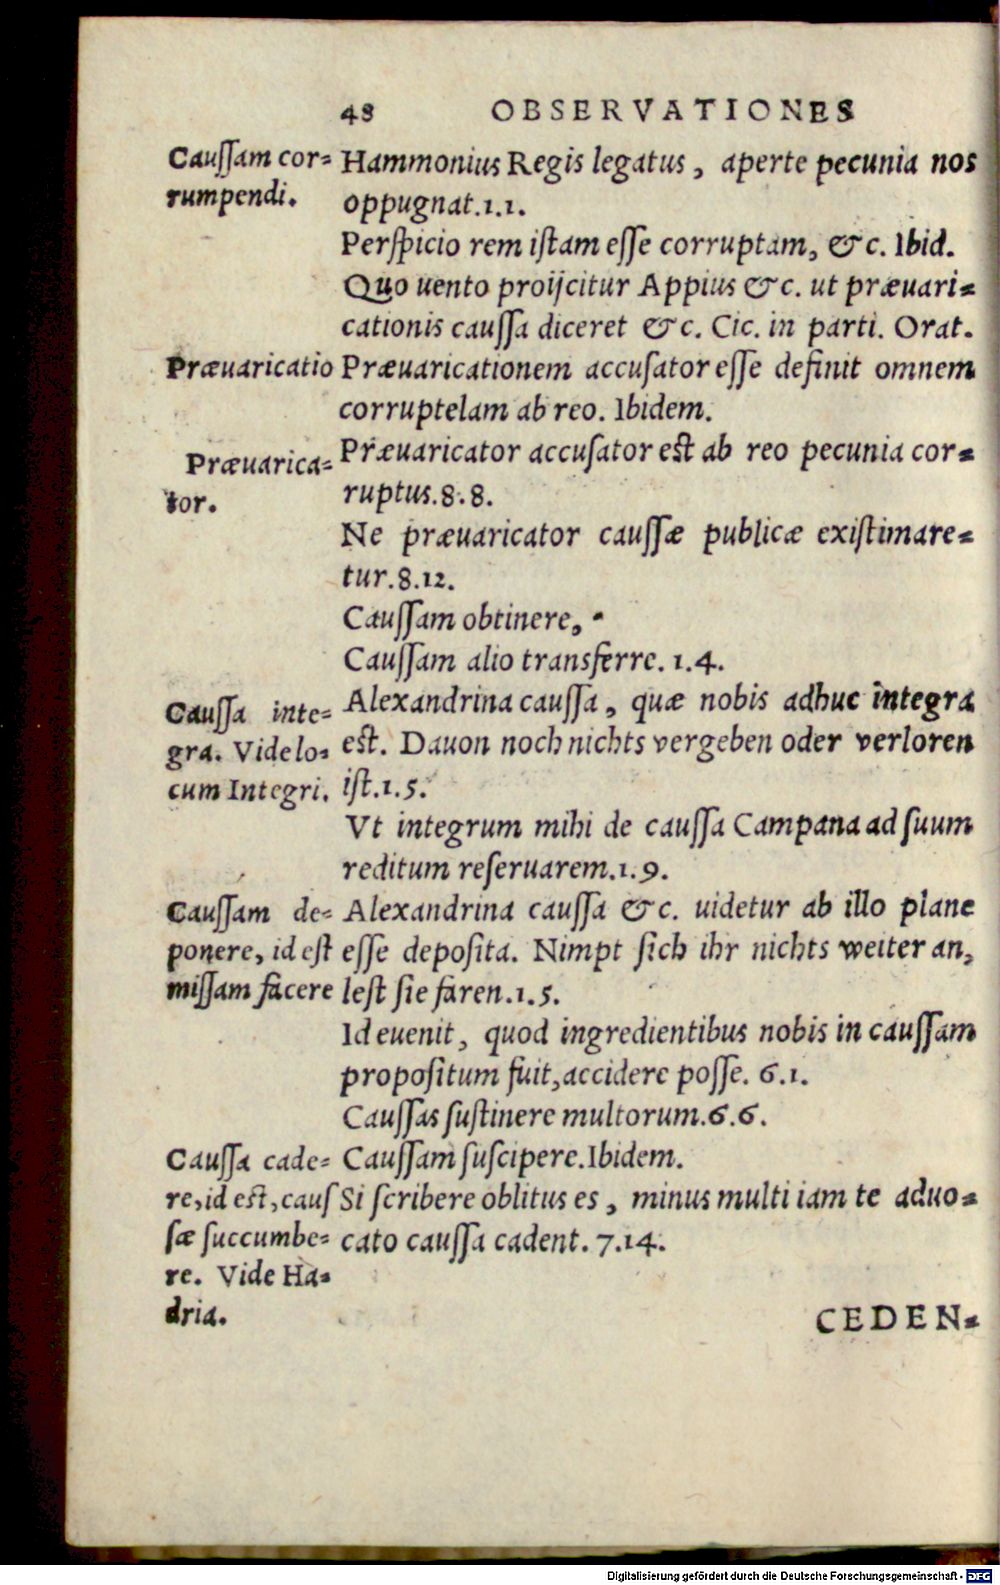 48 OBSERVATIONES
Caussam cor=
rumpendi.
Hammonius Regis legatus, aperte pecunia nos
oppugnat.1.1.
Perspicio rem istam esse corruptam, &c. Ibid.
Quo uento proijcitur Appius &c. ut præuari=
cationis caussa diceret &c. Cic. in parti. Orat.
Præuaricatio
Præuaricationem accusator esse definit omnem
corruptelam ab reo. Ibidem.
Præuarica=
tor.
Præuaricator accusator est ab reo pecunia cor=
ruptus.8.8.
Ne præuaricator caussæ publicæ existimare=
tur.8.12.
Caussam obtinere,
Caussam alio transferre.1.4.
Caussa inte=
gra. Vide lo=
cum Integri.
Alexandrina caussa, quæ nobis adhuc integra
est. Dauon noch nichts vergeben oder verloren
ist.1.5.
Vt integrum mihi de caussa Campana ad suum
reditum reseruarem.1.9.
Caussam de=
ponere, id est
missam facere
Alexandrina caussa &c. uidetur ab illo plane
esse deposita. Nimpt sich ihr nichts weiter an,
lest sie faren.1.5.
Id euenit, quod ingredientibus nobis in caussam
propositum fuit, accidere posse. 6.1.
Caussas sustinere multorum.6.6.
Caussam suscipere.Ibidem.
Caussa cade=
re, id est, caus
sæ succumbe=
re. Vide Ha=
dria.
Si scribere oblitus es, minus multi iam te aduo=
cato caussa cadent. 7.14.
CEDEN=
Digitalisierung gefördert durch die Deutsche Forschungsgemeinschaft - DFG